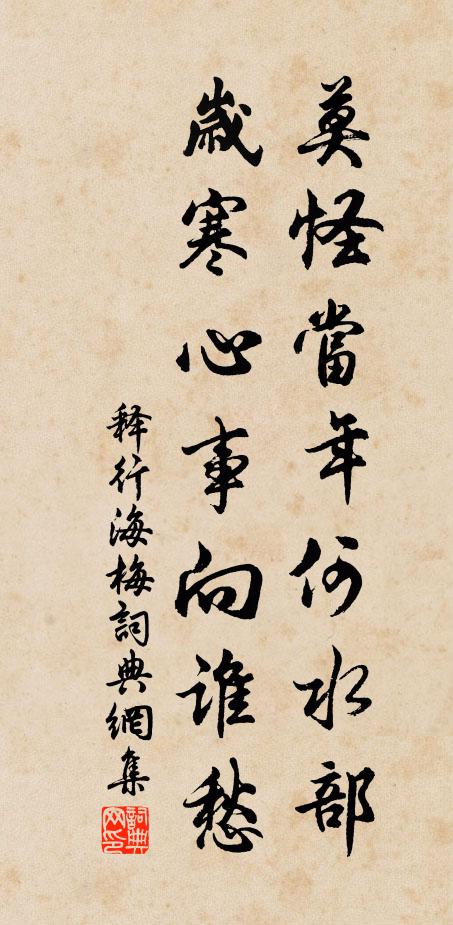 莫怪當年何水部
歲寒心事向誰愁
释行海梅詞典網集
詞典網印